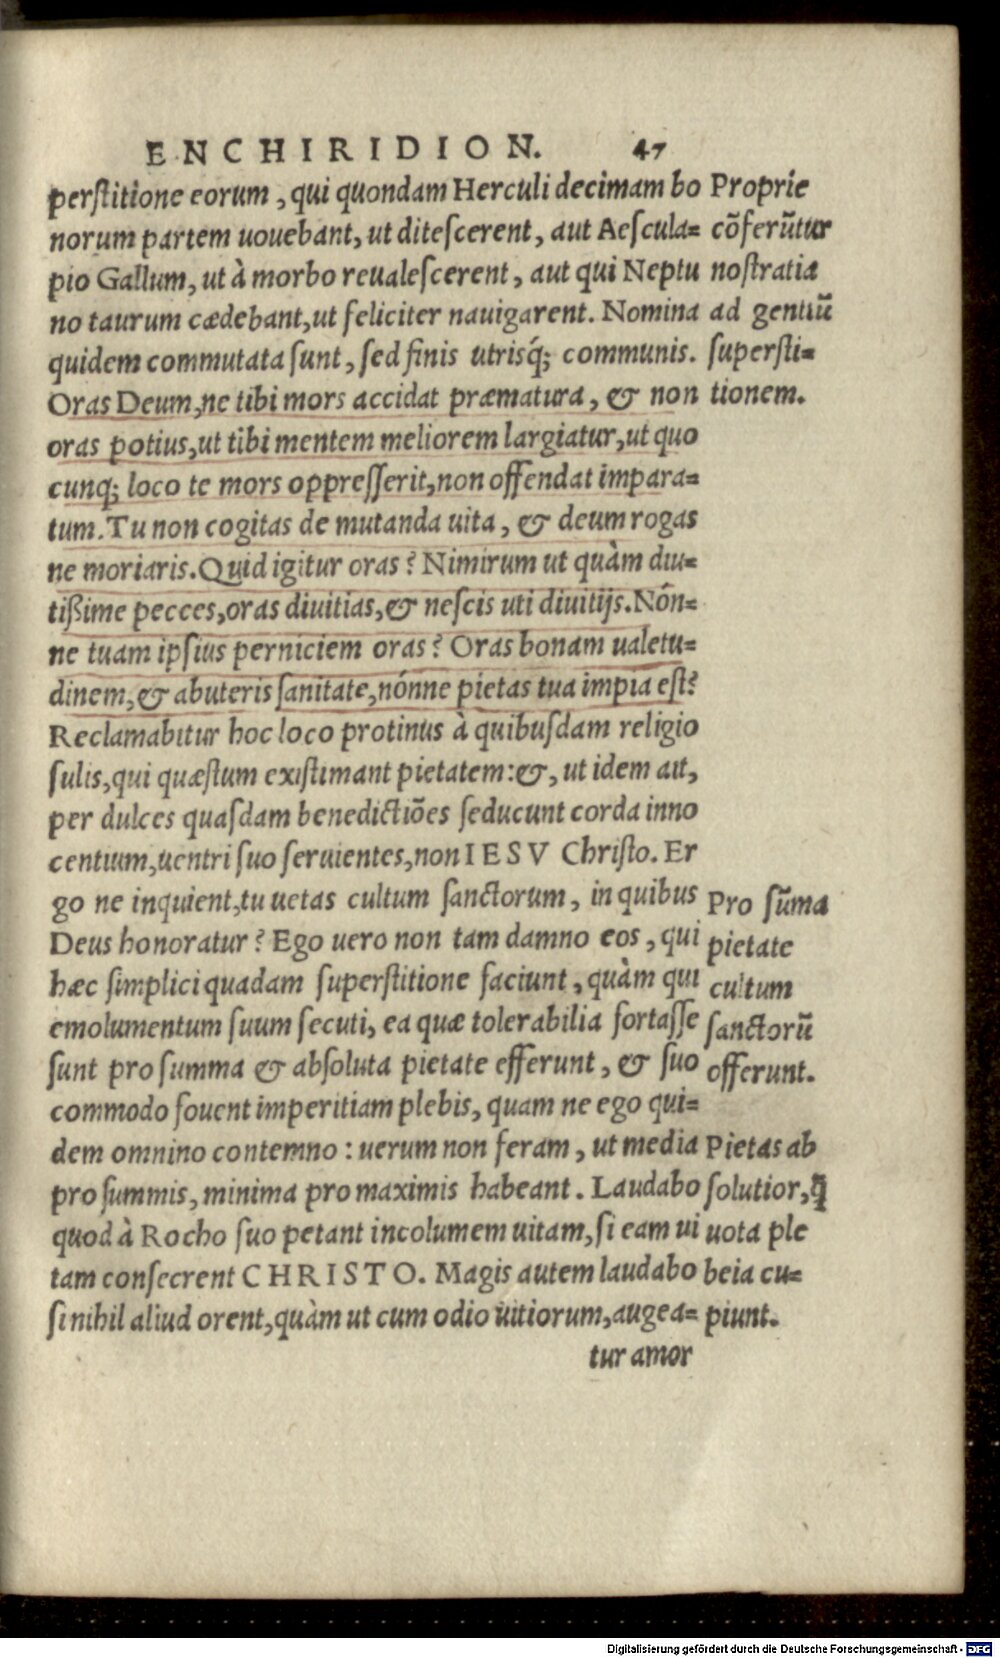 ENCHIRIDION. 47
perſtitione eorum, qui quondam Herculi decimam bo
norum partem uouebant, ut diteſcerent, aut Aeſcula=
pio Gallum, ut à morbo reualeſcerent, aut qui Neptu
no taurum cædebant, ut feliciter nauigarent. Nomina
quidem commutata ſunt, ſed finis utrisq́; communis.
Oras Deum, ne tibi mors accidat præmatura, & non
oras potius, ut tibi mentem meliorem largiatur, ut quo
cunq; loco te mors oppreſſerit, non offendat impara=
tum. Tu non cogitas de mutanda uita, & deum rogas
ne moriaris. Quid igitur oras? Nimirum ut quàm diu=
tißime pecces, oras diuitias, & neſcis uti diuitijs. Nón=
ne tuam ipſius perniciem oras? Oras bonam ualetu=
dinem, & abuteris ſanitate, nónne pietas tua impia eſt?
Reclamabitur hoc loco protinus à quibuſdam religio
ſulis, qui quæſtum exiſtimant pietatem: &, ut idem ait,
per dulces quaſdam benedictiões ſeducunt corda inno
centium, uentri ſuo ſeruientes, non IESV Chriſto. Er
go ne inquient, tu uetas cultum ſanctorum, in quibus
Deus honoratur? Ego uero non tam damno eos, qui
hæc ſimplici quadam superſtitione faciunt, quàm qui
emolumentum ſuum ſecuti, ea quæ tolerabilia fortaſſe
ſunt pro ſumma & abſoluta pietate efferunt, & ſuo
commodo fouent imperitiam plebis, quam ne ego qui=
dem omnino contemno: uerum non feram, ut media
pro ſummis, minima pro maximis habeant. Laudabo
quod à Rocho ſuo petant incolumem uitam, ſi eam ui
tam conſecrent CHRISTO. Magis autem laudabo
ſi nihil aliud orent, quàm ut cum odio uitiorum, augea=
tur amor
Proprie
cõferũtur
noſtratia
ad gentiũ
superſti=
tionem.
Pro ſũma
pietate
cultum
ſanctorũ
offerunt.
Pietas ab
ſolutior, q̃
uota ple
beia cu=
piunt.
Digitalisierung gefördert durch die Deutsche Forschungsgemeinschaft - DFG